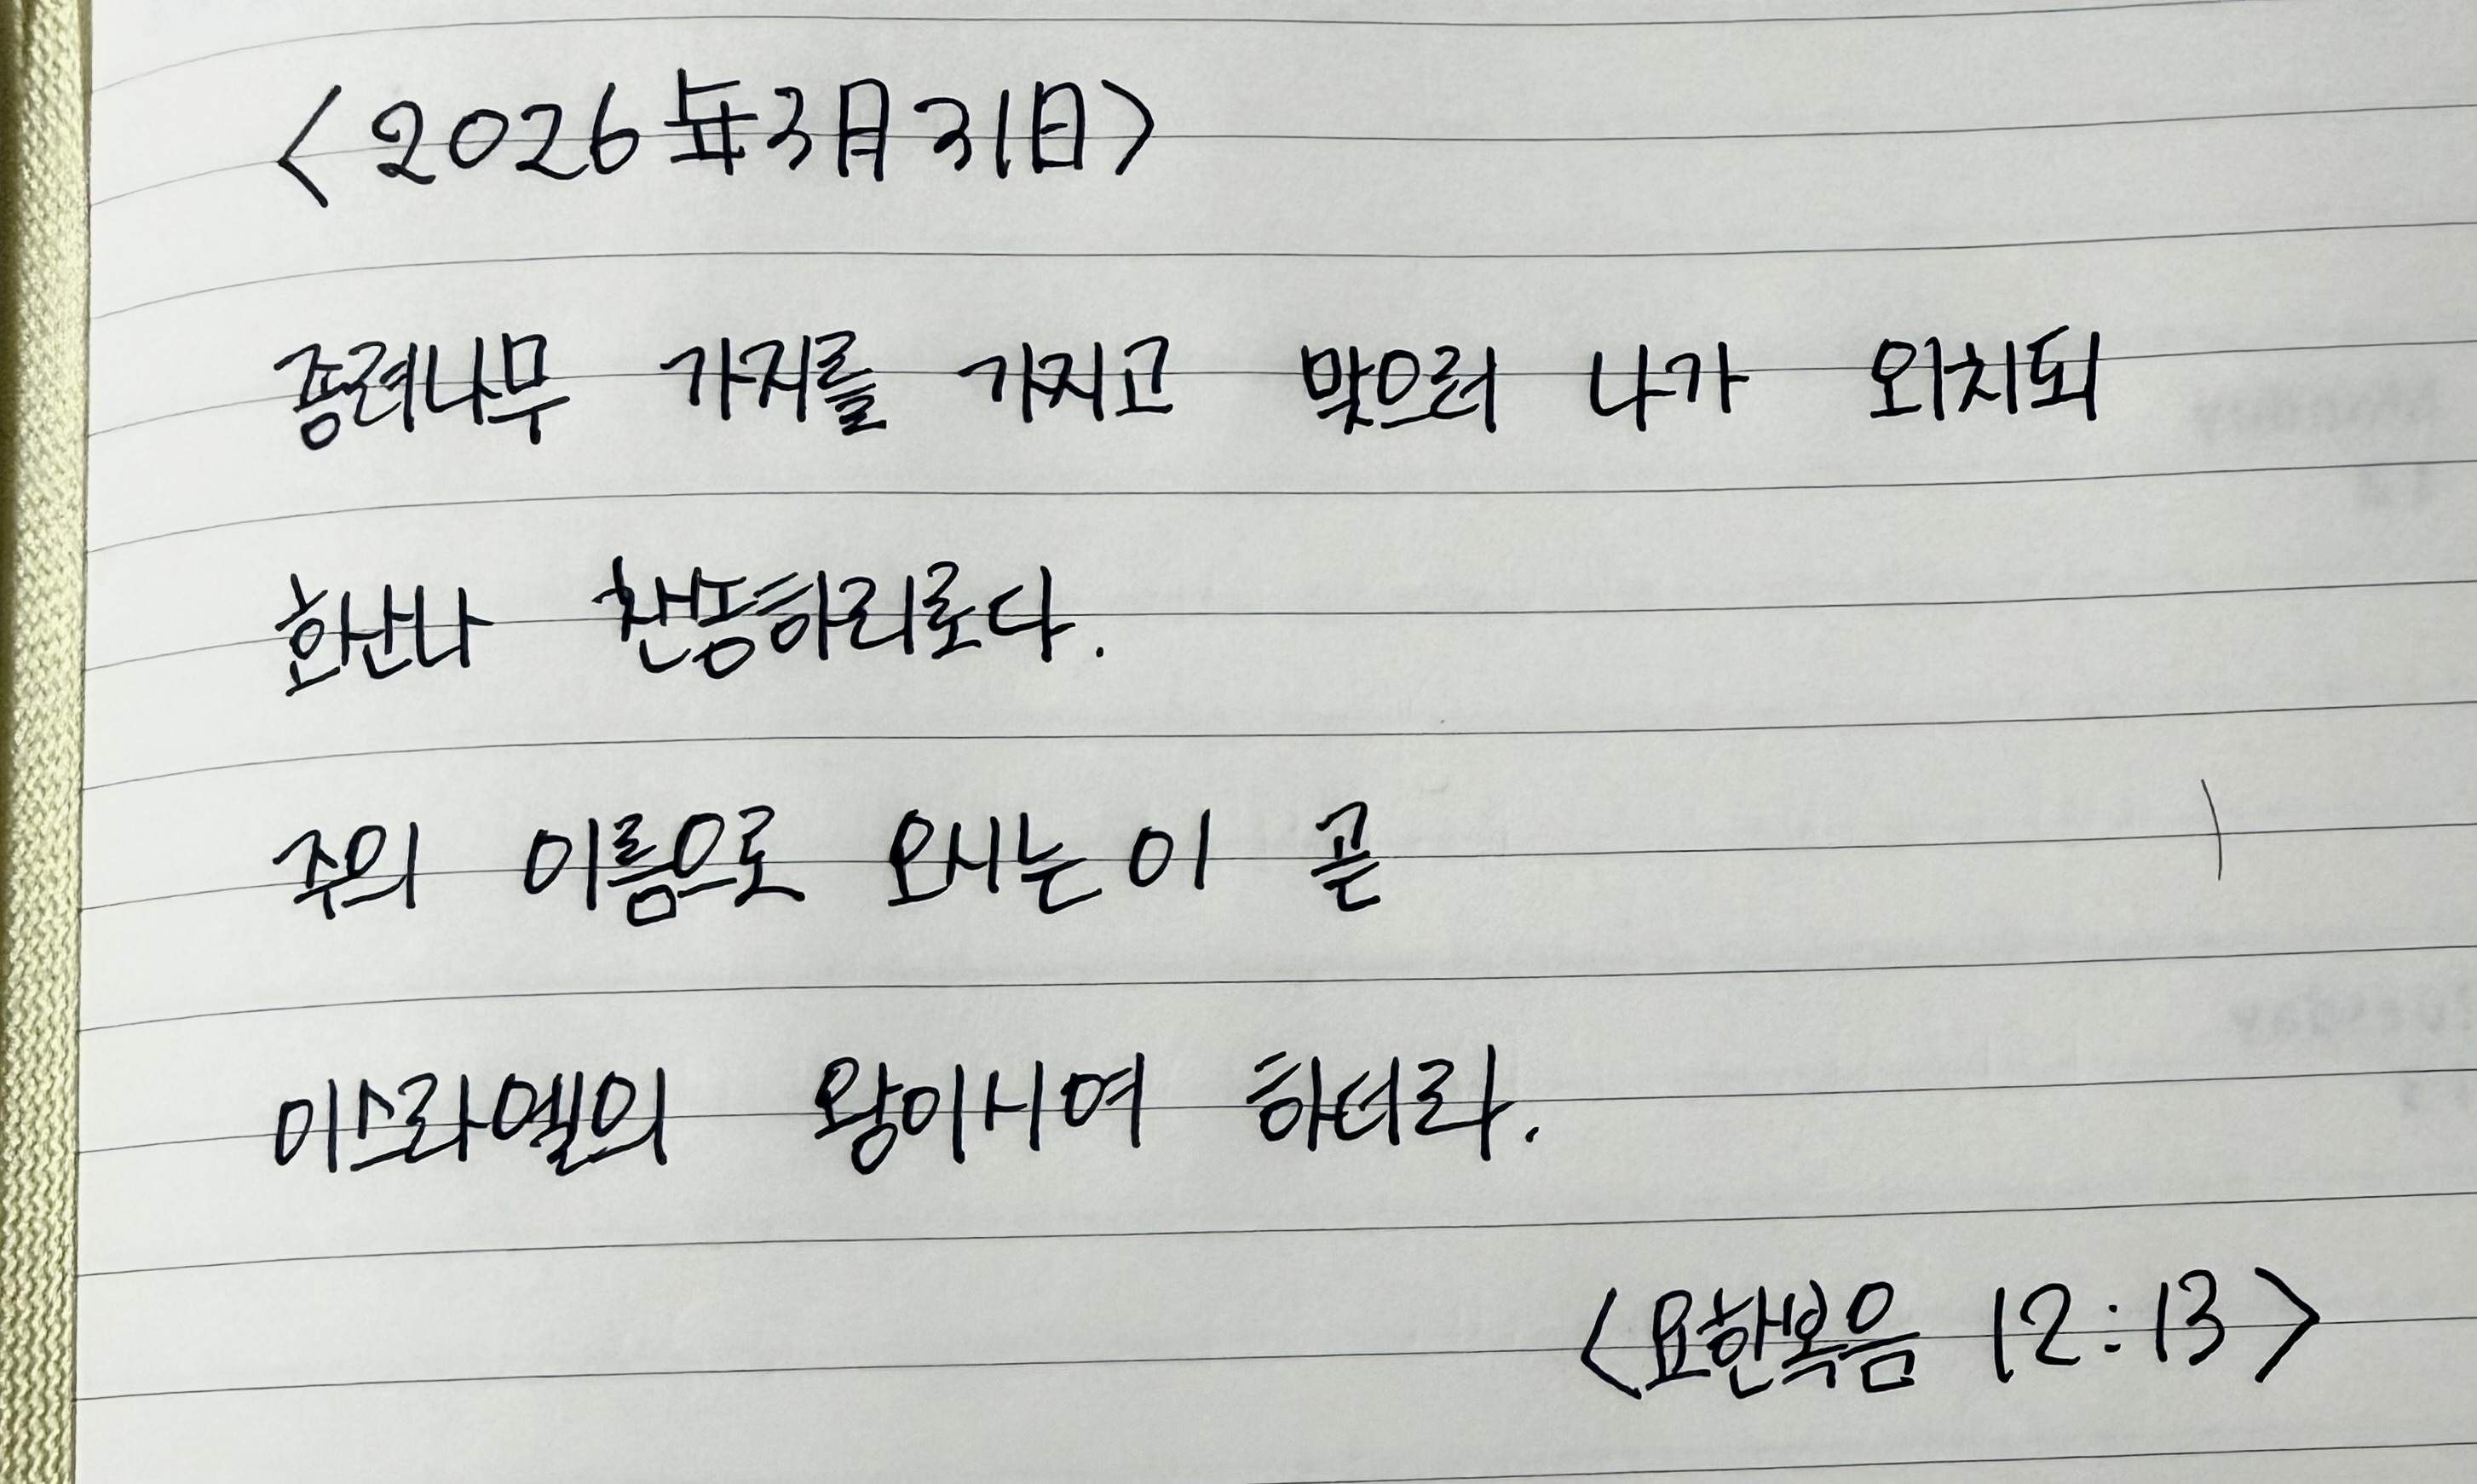 <2026年3月31日>
종려나무 가지를 가지고 맞으러 나가 외치되
호산나 찬송하리로다.
주의 이름으로 오시는 이 곧
이스라엘의 왕이시여 하더라.
<요한복음 12:13>